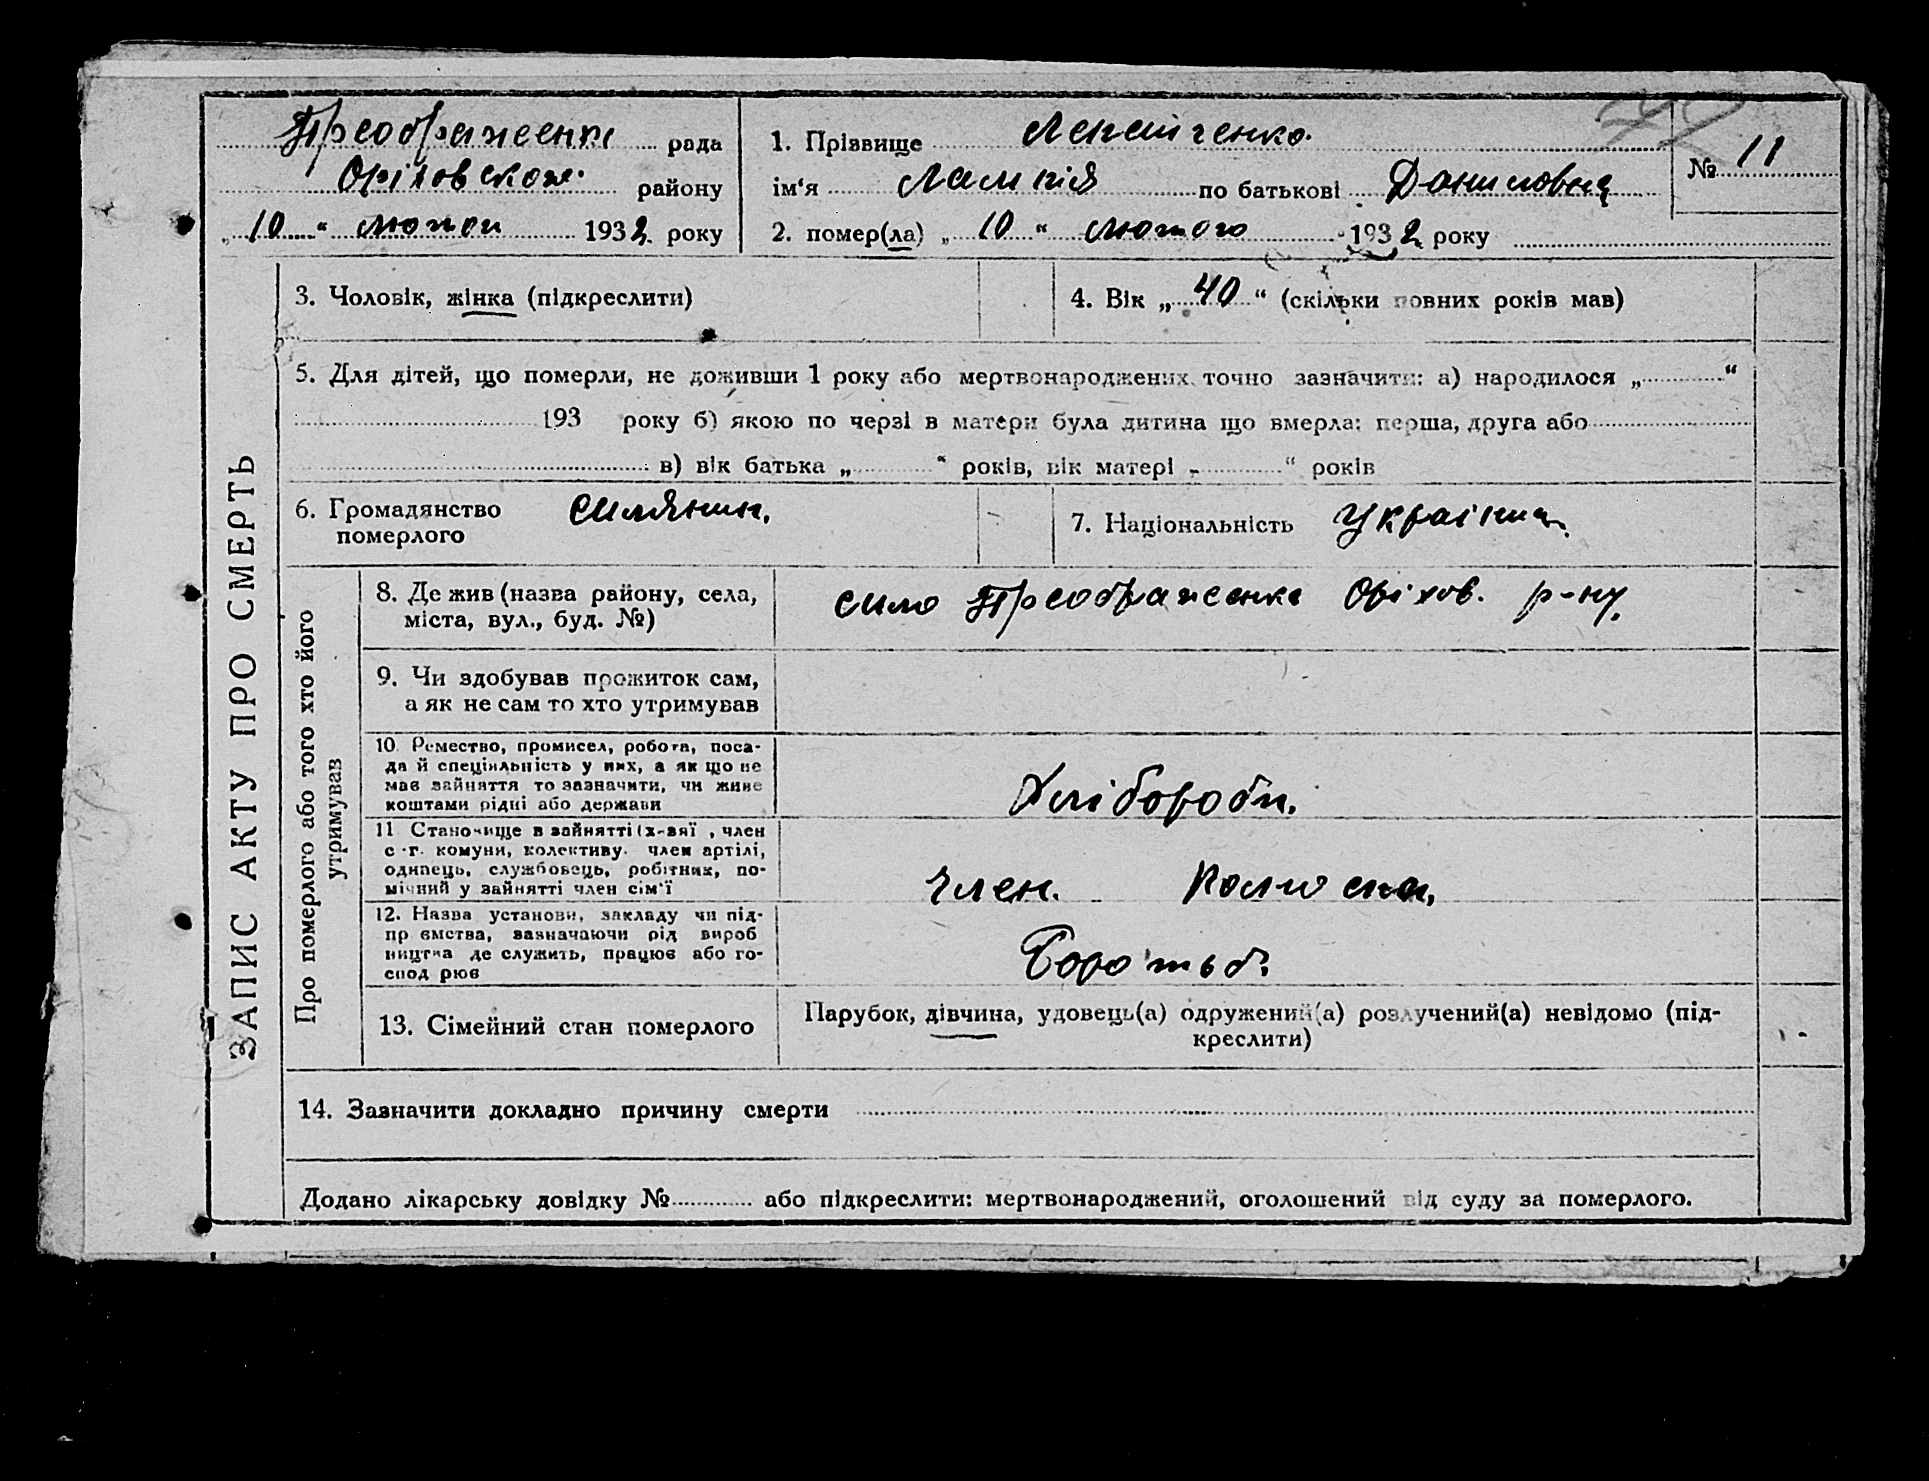 Преображенка рада
Оріховского району
„10“ лютого 1932 року
1. Прізвище
ім'я Лампія по батькові Даниловна
2. помер(ла) „10“ лютого 1932 року
№ 11
3. Чоловік, жінка (підкреслити)
4. Вік „40“ (скільки повних років мав)
5. Для дітей, що померли, не доживши 1 року або мертвонароджених точно зазначити: а) народилося „ “
193 року б) якою по черзі в матери була дитина що вмерла: перша, друга або
в) вік батька „ “ років, вік матері „ “ років
6. Громадянство померлого селянин.
7. Національність Українка.
ЗАПИС АКТУ ПРО СМЕРТЬ
Про померлого або того хто його утримував
8. Де жив (назва району, села,
міста, вул., буд. №)
село Преображенка Оріхов. р-ну.
9. Чи здобував прожиток сам,
а як не сам то хто утримував
10. Ремество, промисел, робота, поса-
да й спеціяльність у них, а як що не
мав зайняття то зазначити, чи живе
коштами рідні або держави
Хлібороби.
11 Становище в зайнятті (х-вяї , член
с-г. комуни, колективу. член артілі,
одинець, службовець, робітник, по-
мічний у зайнятті член сім'ї
член.
12. Назва установи, закладу чи під-
пр ємства, зазначаючи рід вироб
ництва де служить, працює або го-
спод рює
13. Сімейний стан померлого
Парубок, дівчина, удовець(а) одружений(а) розлучений(а) невідомо (під-
креслити)
14. Зазначити докладно причину смерти
Додано лікарську довідку № або підкреслити: мертвонароджений, оголошений від суду за померлого.